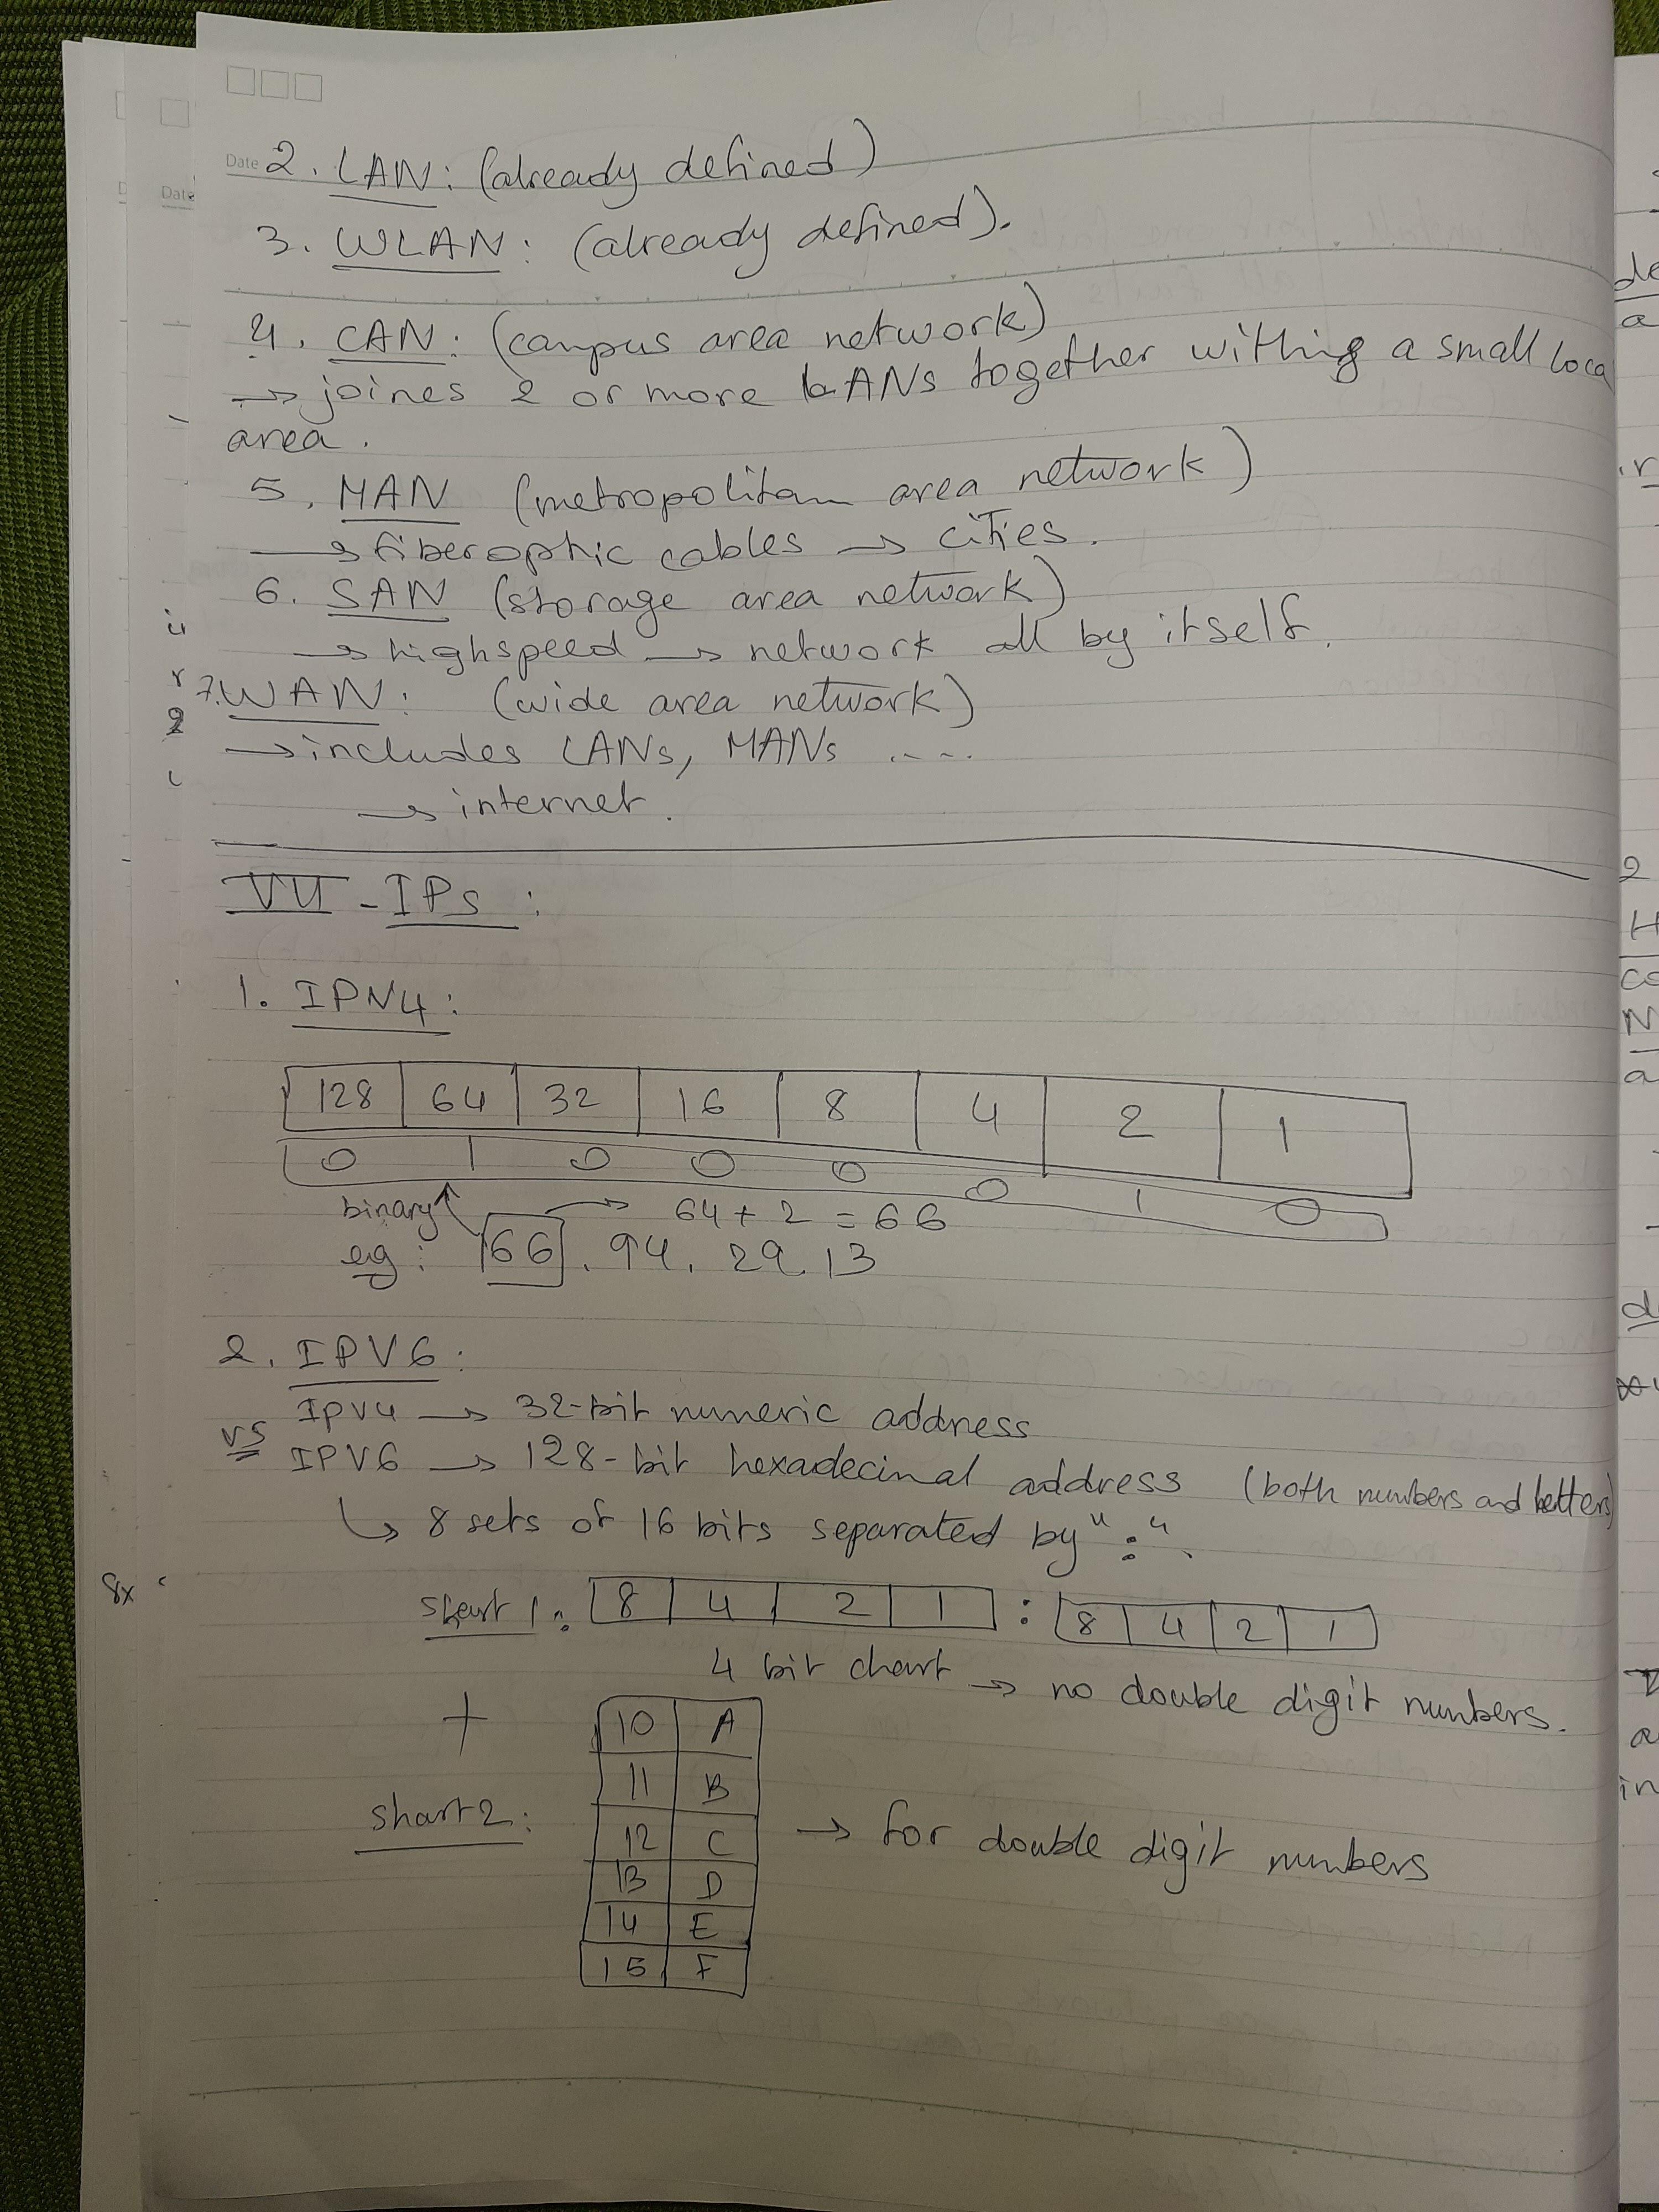 Date 2. LAN: (already defined)
3. WLAN: (already defined).
4. CAN: (campus area network)
→ joines 2 or more LANs together withing a small loca
area.
5. MAN (metropolitan area network)
→ fiberoptic cables → cities.
6. SAN (storage area network)
→ highspeed → network all by itself.
7. WAN: (wide area network)
→ includes LANs, MANs ....
→ internet.
VII - IPs :
1. IPN4:
128 64 32 16 8 4 2 1
0 1 0 0 0 0 1 0
binary → 64 + 2 = 66
eg: 66. 94. 29. 13
2. IPV6:
IPV4 → 32-bit numeric address
vs
IPV6 → 128-bit hexadecimal address (both numbers and letters)
↳ 8 sets of 16 bits separated by ":".
8x
shart 1: 8 4 2 1 : 8 4 2 1
4 bit chart → no double digit numbers.
+
10 A
11 B
shart 2: 12 C → for double digit numbers
13 D
14 E
15 F